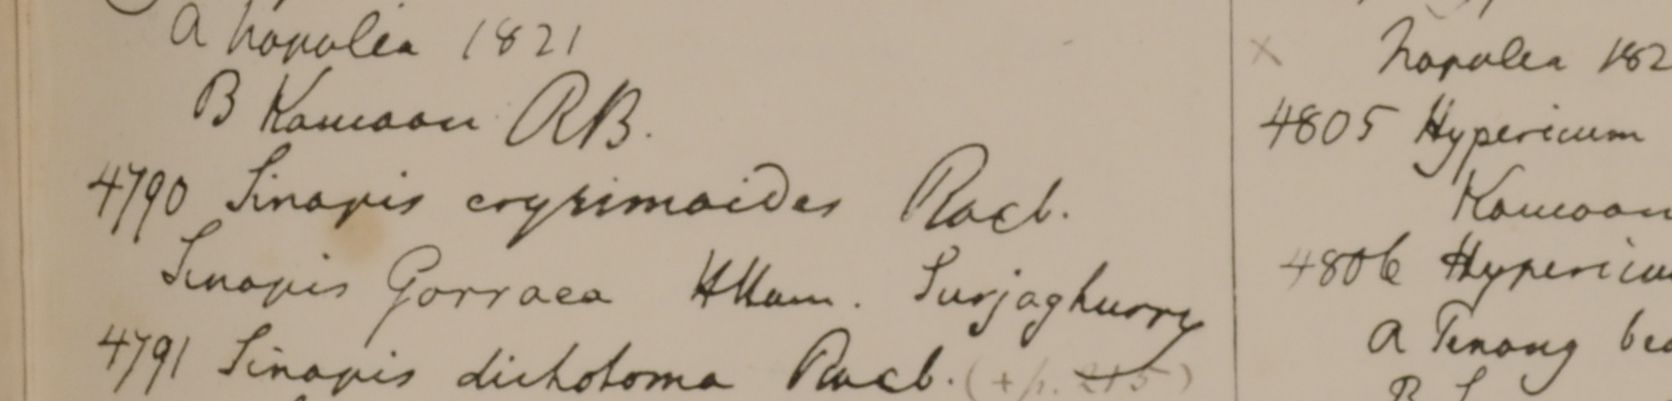 a Napalea 1821
B Kamaon RB.
4790 Sinapis erysimoides Roxb.
Sinapis Gorraea HHam. Surjaghurry
4791 Sinapis dichotoma Roxb. (+ p. 215)
x Napalea 182
4805 Hypericum
Kamaon
4806 Hypericu
a Penang
B